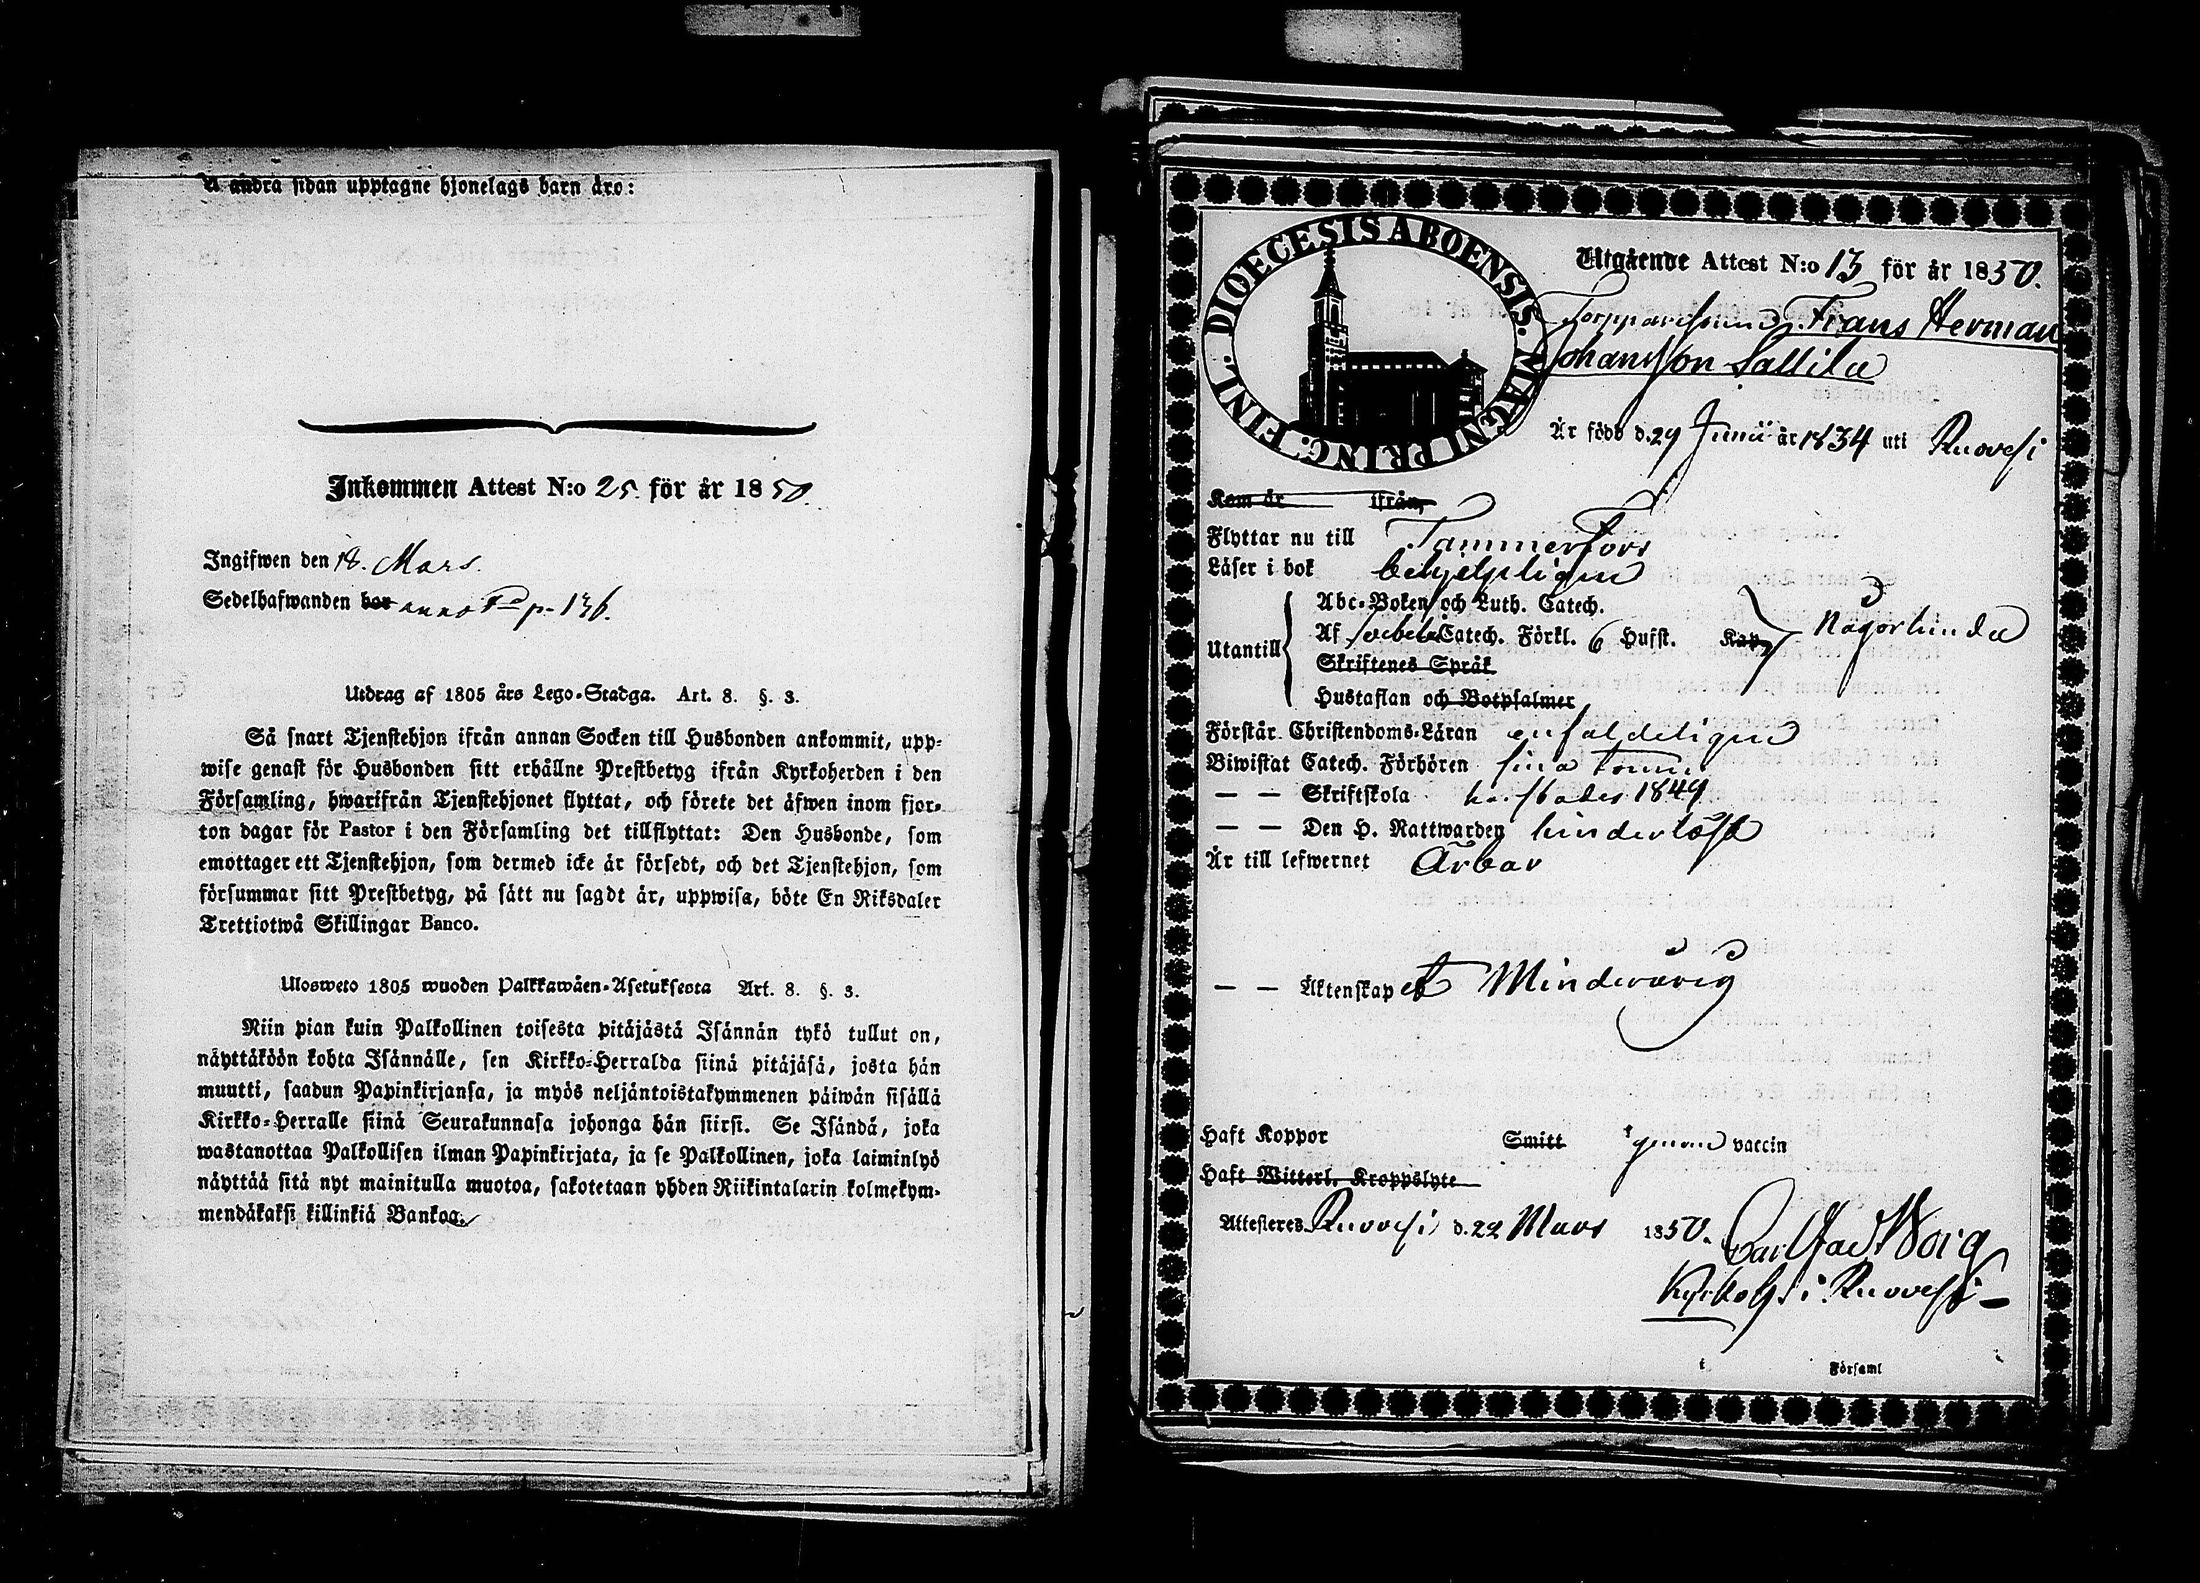 å andra sidan upptagne hjonelags barn äro:
Inkommen Attest N:o 25. för år 1850.
Ingifwen den 18. Mars.
Sedelhafwanden bor anno p. 136.
Utdrag af 1805 års Lego-Stadga. Art. 8. §. 3.
Så snart Tjenstehjon ifrån annan Socken till Husbonden ankommit, upp-
wise genast för Husbonden sitt erhållne Prestbetyg ifrån Kyrkoherden i den
Församling, hwarifrån Tjenstehjonet flyttat, och förete det äfwen inom fjor-
ton dagar för Pastor i den Församling det tillflyttat: Den Husbonde, som
emottager ett Tjenstehjon, som dermed icke är försedt, och det Tjenstehjon, som
försummar sitt Prestbetyg, på sätt nu sagdt är, uppwisa, böte En Riksdaler
Trettiotwå Skillingar Banco.
Ulosweto 1805 wuoden Palkkawäen-Asetuksesta Art. 8. §. 3.
Niin pian kuin Palkollinen toisesta pitäjästä Isännän tykö tullut on,
näyttäköön kohta Isännälle, sen Kirkko-Herralda siinä pitäjäsä, josta hän
muutti, saadun Papinkirjansa, ja myös neljäntoistakymmenen päiwän sisällä
Kirkko-Herralle siinä Seurakunnasa johonga hän siirsi. Se Isändä, joka
wastanottaa Palkollisen ilman Papinkirjata, ja se Palkollinen, joka laiminlyö
näyttää sitä nyt mainitulla muotoa, sakotetaan yhden Riikintalarin kolmekym-
mendäkaksi killinkiä Bankoa.
DIOECESIS ABOENSIS. MAGNI PRINC. FINL.
Utgående Attest N:o 13 för år 1850.
Frans Herman
Johansson Sallila
Är född d. 29 Junii år 1834 uti Ruovesi
Kom år ifrån,
Flyttar nu till Tammerfors
Läser i bok behjelpligen
Abc-Boken och Luth. Catech.
Utantill Af Catech. Förkl. 6 Hufst. Kap. Någorlunda
Skriftenes Språk
Hustaflan och Botpsalmer
Förstår Christendoms-Läran enfaldeligen
Biwistat Catech. Förhören sina
— — Skriftskola 1849
— — Den H. Nattwarden hinderlöst
Är till lefwernet Ärbar
— — Äktenskapet Minderårig
Haft Koppor Smitt genom vaccin
Haft Witterl. Kroppslyte
Attesteres Ruovesi d. 22 Mars 1850. Carl Borg
i Ruovesi
i Församl